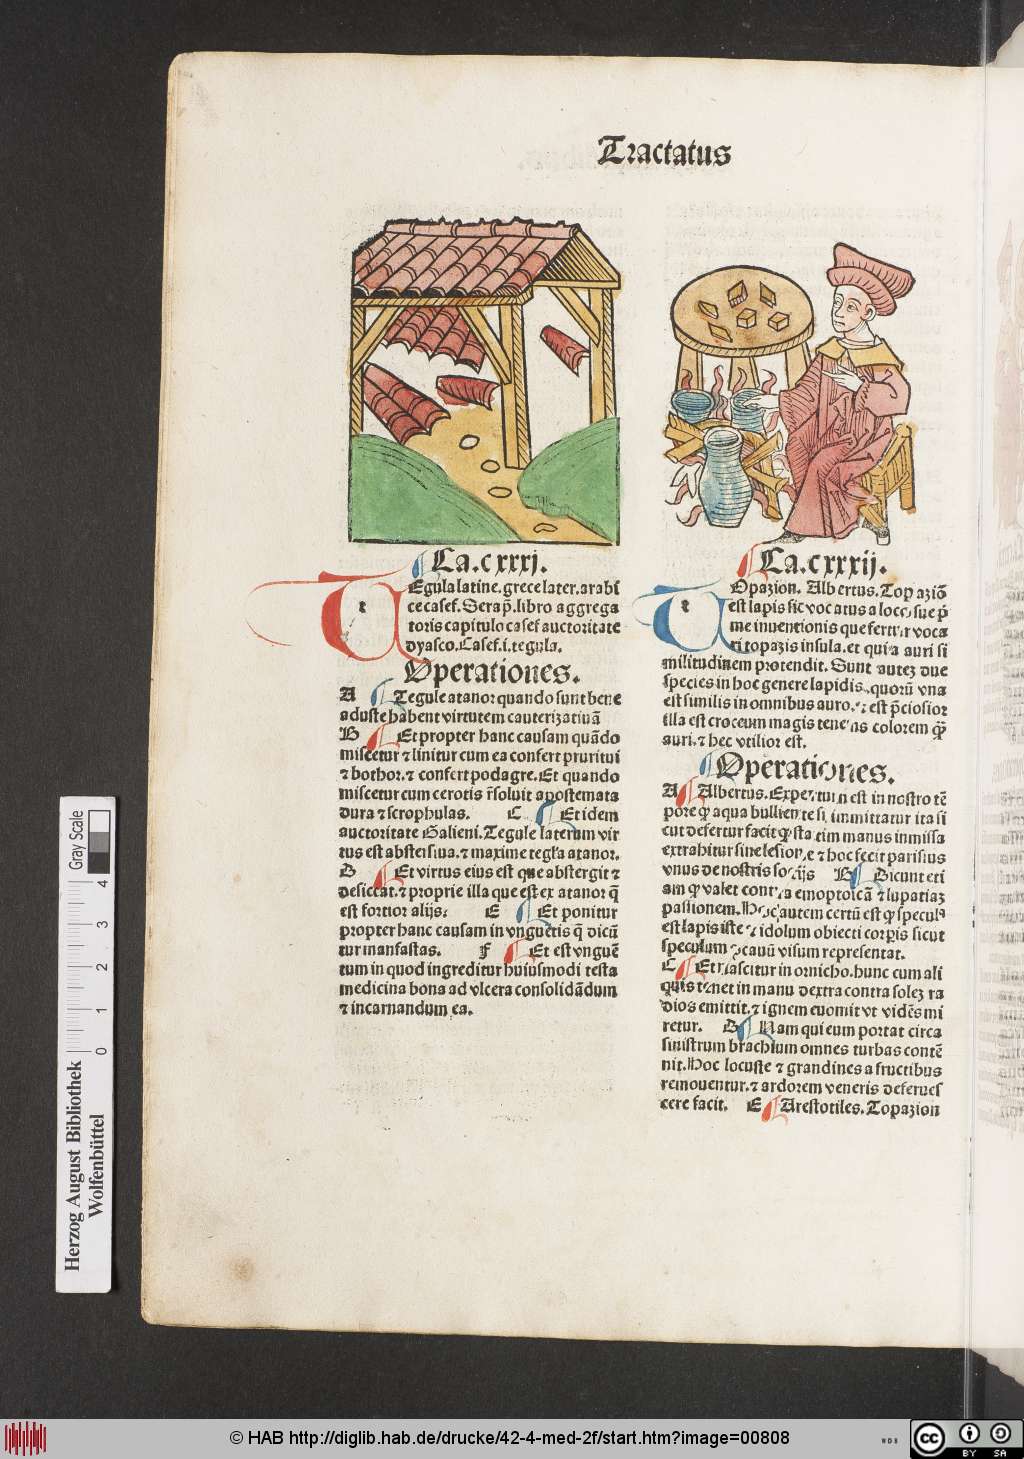 Tractatus
Ca.cxxxj.
Egula latine.grece later.arabi
ce casef.Serap̄.libro aggrega
toris capitulo casef auctoritate
dyasco.Casef.i.tegula.
Operationes.
A Tegule atanor quando sunt bene
aduste habent virtutem cauterizatiuā
B Et propter hanc causam quādo
miscetur ⁊ linitur cum ea confert pruritui
⁊ bothor.⁊ confert podagre.Et quando
miscetur cum cerotis r̄soluit apostemata
dura ⁊ scrophulas. C Et idem
auctoritate Galieni.Tegule laterum vir
tus est abstersiua.⁊ maxime tegl̄a atanor.
D Et virtus eius est que abstergit ⁊
desiccat.⁊ proprie illa que est ex atanor q̄
est fortior alijs: E Et ponitur
propter hanc causam in vnguētis q̄ dicū
tur manfastas. F Et est vnguē
tum in quod ingreditur huiusmodi testa
medicina bona ad vlcera consolidādum
⁊ incarnandum ea.
Ca.cxxxij.
Opazion. Albertus.Topaziō
est lapis sic vocatus a loco sue p̄
me inuentionis que fertur voca
ri topazis insula.et quia auri si
militudinem protendit. Sunt autez due
species in hoc genere lapidis.quorū vna
est similis in omnibus auro.⁊ est p̄ciosior
illa est croceum magis tenens colorem q̄
auri.⁊ hec vtilior est.
Operationes.
A Albertus.Expertum est in nostro tē
pore q̄ aqua bulliente si immittatur ita si
cut defertur facit q̄ statim manus inmissa
extrahitur sine lesione ⁊ hoc fecit parisius
vnus de nostris socijs B Dicunt eti
am q̄ valet contra emoptoicā ⁊ lupatiaz
passionem.Hoc autem certū est q̄ specula
est lapis iste ⁊ idolum obiecti corꝑis sicut
speculum ↄcauū visum representat.
C Et nascitur in ornicho.hunc cum ali
quis tenet in manu dextra contra solez ra
dios emittit.⁊ ignem euomit vt videns mi
retur. D Nam qui eum portat circa
sinistrum brachium omnes turbas contē
nit.Hoc locuste ⁊ grandines a fructibus
remouentur.⁊ ardorem veneris deferues
cere facit. E Arestotiles.Topazion
Herzog August Bibliothek
Wolfenbüttel
0 1 2 3 4
Gray Scale
© HAB http://diglib.hab.de/drucke/42-4-med-2f/start.htm?image=00808
WDB
cc BY SA